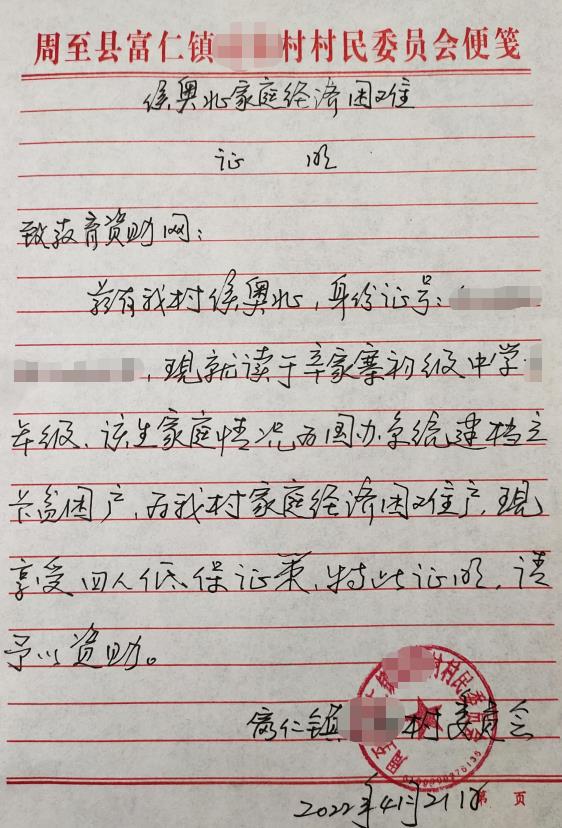 周至县富仁镇 村村民委员会便笺
侯奥 家庭经济困难
证 明
致教育资助网：
兹有我村侯奥 ，身份证号：
，现就读于辛家寨初级中学
年级、该生家庭情况为国办系统建档立
卡贫困户，为我村家庭经济困难户，现
享受四人低保政策，特此证明，请
予以资助。
富仁镇 村委员会
2022年4月21日
第 页